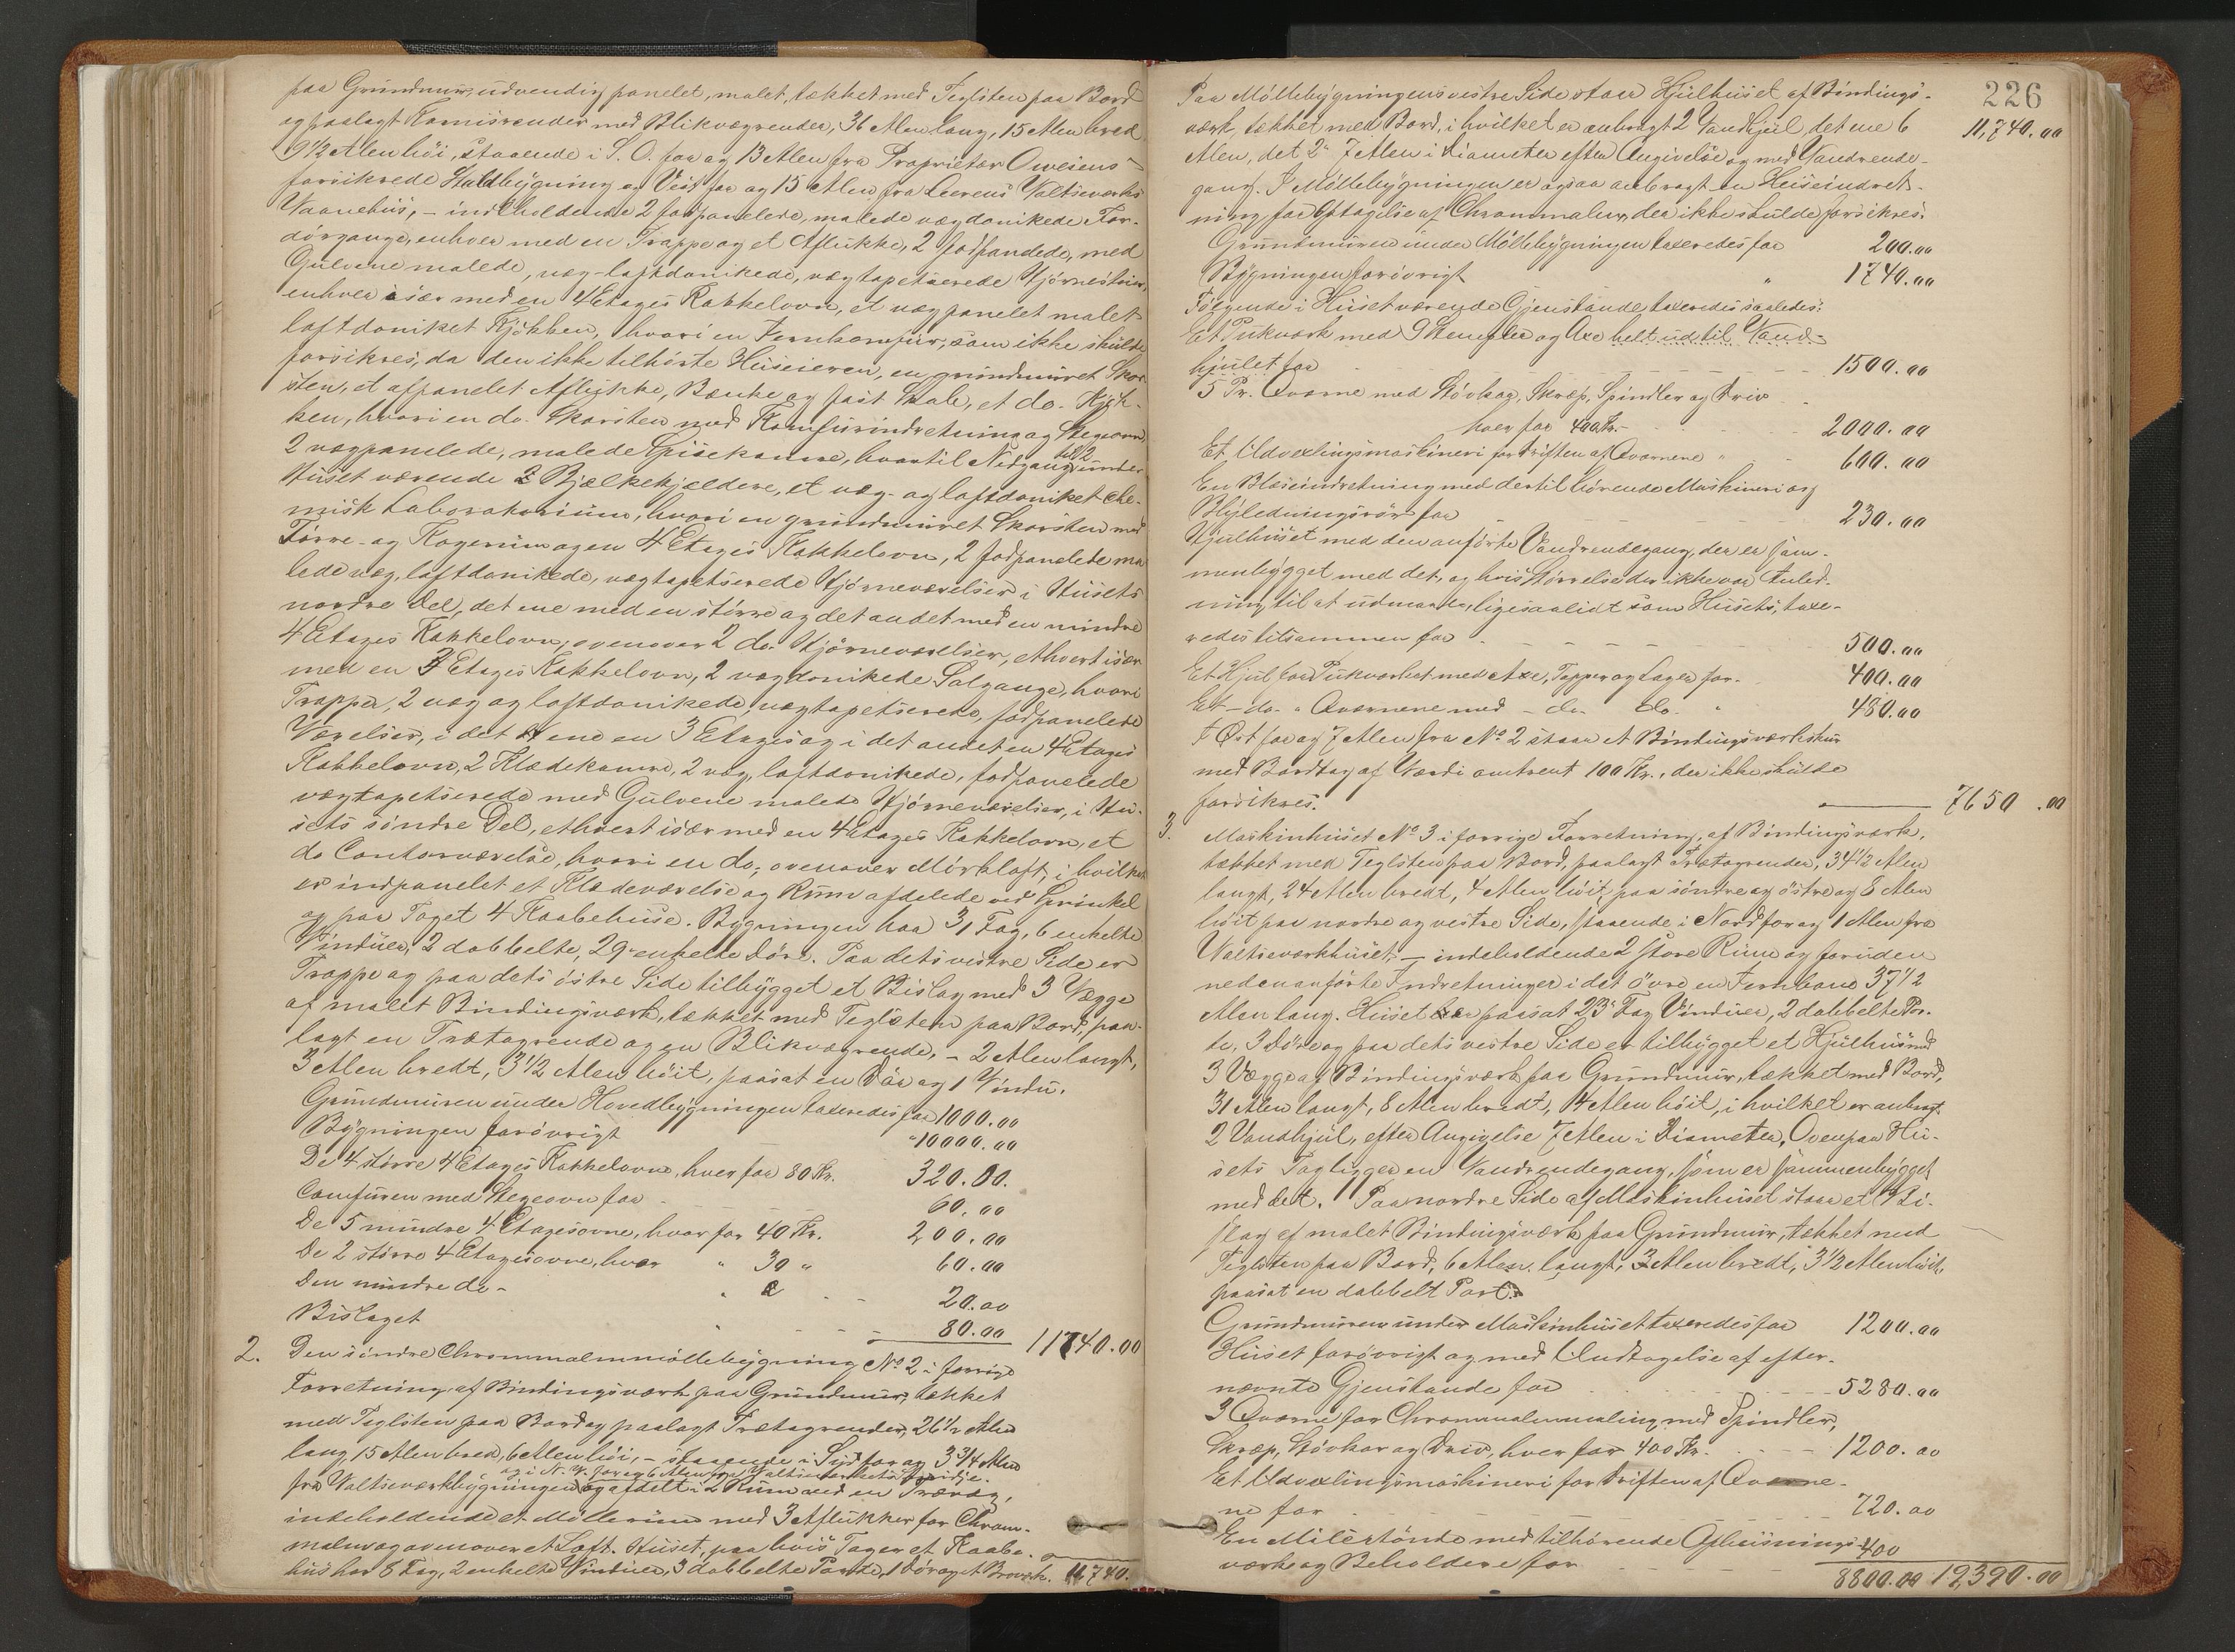 paa Grundmur, udvendig panelet, malet, tækket med Teglsten paa Bord
og paalagt Karnisrender med Blikvægrender, 36 Alen lang, 15 Alen bred
9½ Alen høi, staaende i S. O. for og 13 Alen fra Proprietær Owesens
forsikrede Staldbygning og Vest for og 15 Alen fra Leerens Valtseværks
Vaanehus, – indeholdende 2 fodpanelede, malede vægdonikede For-
dørgange, enhver med en Trappe og et Aflukke, 2 fodpanelede, med
Gulvene malede, væg-loftdonikede, vægtapetserede Hjørnestuer,
enhver især med en 4 Etages Kakkelovn, et vægpanelet malet
loftdoniket Kjøkken, hvori en Jernkomfur, som ikke skulde
forsikres, da den ikke tilhørte Huseieren, en grundmuret Skor-
sten, et afpanelet Aflukke, Bænke og fast Skab, et do. Kjøk-
ken, hvori en do. Skorsten med Komfurindretning og Stegeovn,
2 vægpanelede, malede Spisekamre, hvortil Nedgang til 2 under
Huset værende 2 Bjælkekjældere, et væg- og loftdoniket che-
misk Laboratorium, hvori en grundmuret Skorsten med
Tørre- og Kogerum og en 4 Etages Kakkelovn, 2 fodpanelede ma-
lede væg, loftdonikede, vægtapetserede Hjørneværelser i Husets
nordre Del, det ene med en større og det andet med en mindre
4 Etages Kakkelovn; ovenover 2 do. Hjørneværelser, ethvert især
med en 3 Etages Kakkelovn, 2 vægdonikede Salgange, hvori
Trapper, 2 væg og loftdonikede, vægtapetserede, fodpanelede
Værelser, i det ene en 3 Etages og i det andet en 4 Etages
Kakkelovn, 2 Klædekamre, 2 væg, loftdonikede, fodpanelede
vægtapetserede med Gulvene malede Hjørneværelser, i Hu-
sets søndre Del, ethvert især med en 4 Etages Kakkelovn, et
do Contorværelse, hvori en do; ovenover Mørkloft, i hvilket
er indpanelet et Klædeværelse og Rum afdelede ved Sprinkel
og paa Taget 4 Kaabehuse. Bygningen har 31 Fag, 6 enkelte
Vinduer, 2 dobbelte, 29 enkelte Døre. Paa dets vestre Side er
Trappe og paa dets østre Side tilbygget et Bislag med 3 Vægge
af malet Bindingsværk, tækket med Teglsten paa Bord, paa-
lagt en Trætagrende og en Blikvægrende, – 2 Alen langt,
3 Alen bredt, 3½ Alen høit, paasat en Dør og 1 Vindu.
Grundmuren under Hovedbygningen taxeredes for 1000.00
Bygningen forøvrigt " 10000.00
De 4 større 4 Etages Kakkelovne, hver for 80 Kr. 320.00.
Comfuren med Stegeovn for 60.00
De 5 mindre 4 Etagesovne, hver for 40 Kr. 200.00
De 2 større 4 Etagesovne, hver " 30 " 60.00
Den mindre do – " 20.00
Bislaget " 80.00 11740.00
2. Den søndre Chrommalmmøllebygning No 2 i forrige
Forretning, af Bindingsværk paa Grundmur, tækket
med Teglsten paa Bord og paalagt Trætagrender, 26½ Alen
lang, 15 Alen bred, 6 Alen høi, – staaende i Syd for og 3 3/4 Alen
og i N. V. for og 6 Alen fra Valtseværkets Smidje.
fra Valtseværkbygningen og afdelt i 2 Rum ved en Trævæg,
indeholdende et Møllerum med 3 Aflukker for Chrom-
malm og ovenover et Loft. Huset, paa hvis Tag er et Kaabe-
hus har 8 Fag, 2 enkelte Vinduer, 3 dobbelte Porte, 1 Dør og et Brovæk. 11,740.
226
Paa Møllebygningens vestre Side staar Hjulhuset af Bindings- 11,740.00
værk, tækket med Bord, i hvilket er anbragt 2 Vandhjul, det ene 6
Alen, det 2t 7 Alen i Diameter efter Angivelse og med Vandrende-
gang. I Møllebygningen er ogsaa anbragt en Heiseindret-
ning for Optagelse af Chrommalm, der ikke skulde forsikres.
Grundmuren under Møllebygningen taxeredes for 200.00
Bygningen forøvrigt " 1740.00
Følgende i Huset værende Gjenstande taxeredes saaledes:
Et Pukværk med 9 Stempler og Axe helt ud til Vand-
hjulet for 1500.00
5 Pr. Qværne med Støvkar, Skræp, Spindler og Driv
hver for 400 Kr. – 2000.00
Et Udvexlingsmaskineri for Driften af Qværnene " 600.00
En Blæseindretning med dertil hørende Maskineri og
Blyledningsrør for 230.00
Hjulhuset med den anførte Vandrendegang, der er sam-
menbygget med det, og hvis Størrelse der ikke var Anled-
ning til at udmaale, ligesaalidt som Husets, taxe-
redes tilsammen for 500.00
Et Hjul for Pukværket med Axe, Tapper og Lager for. 400.00
Et – do. " Qværnene med – do. do. " 480.00
I Øst for og 7 Alen fra No 2 staar et Bindingsværkskur
med Bordtag af Værdi omtrent 100 Kr., der ikke skulde
forsikres. 7650.00
3. Maskinhuset No 3 i forrige Forretning, af Bindingsværk,
tækket med Teglsten paa Bord, paalagt Trætagrender, 34½ Alen
langt, 24 Alen bredt, 4 Alen høit, paa søndre og østre og 8 Alen
høit paa nordre og vestre Side, staaende i Nord for og 1 Alen fra
Valtseværkhuset, – indeholdende 2 store Rum og foruden
nedenanførte Indretninger i det øvre en Jernbane 37½
Alen lang. Huset har paasat 23 Fag Vinduer, 2 dobbelte Por-
te, 3 Døre og paa dets vestre Side er tilbygget et Hjulhus med
3 Vægge af Bindingsværk paa Grundmur, tækket med Bord,
31 Alen langt, 8 Alen bredt, 4 Alen høit, i hvilket er anbragt
2 Vandhjul, efter Angivelse 7 Alen i Diameter, Ovenpaa Hu-
sets Tag ligger en Vandrendegang, som er sammenbygget
med det. Paa nordre Side af Maskinhuset staar et Bi-
slag af malet Bindingsværk paa Grundmur, tækket med
Teglsten paa Bord, 6 Alen langt, 3 Alen bredt, 3½ Alen høit,
paasat en dobbelt Port.
Grundmuren under Maskinhuset taxeredes for 1200.00
Huset forøvrigt og med Undtagelse af efter-
nævnte Gjenstande for 5280.00
3 Qværne for Chrommalmmaling med Spindler,
Skræp, Støvkar og Driv, hver for 400 Kr. 1200.00
Et Udvexlingsmaskineri for Driften af Qværne-
ne for 720.00
En Miletønde med tilhørende Afheisnings-
værk og Beholdere for 400
8800.00 19,390.00